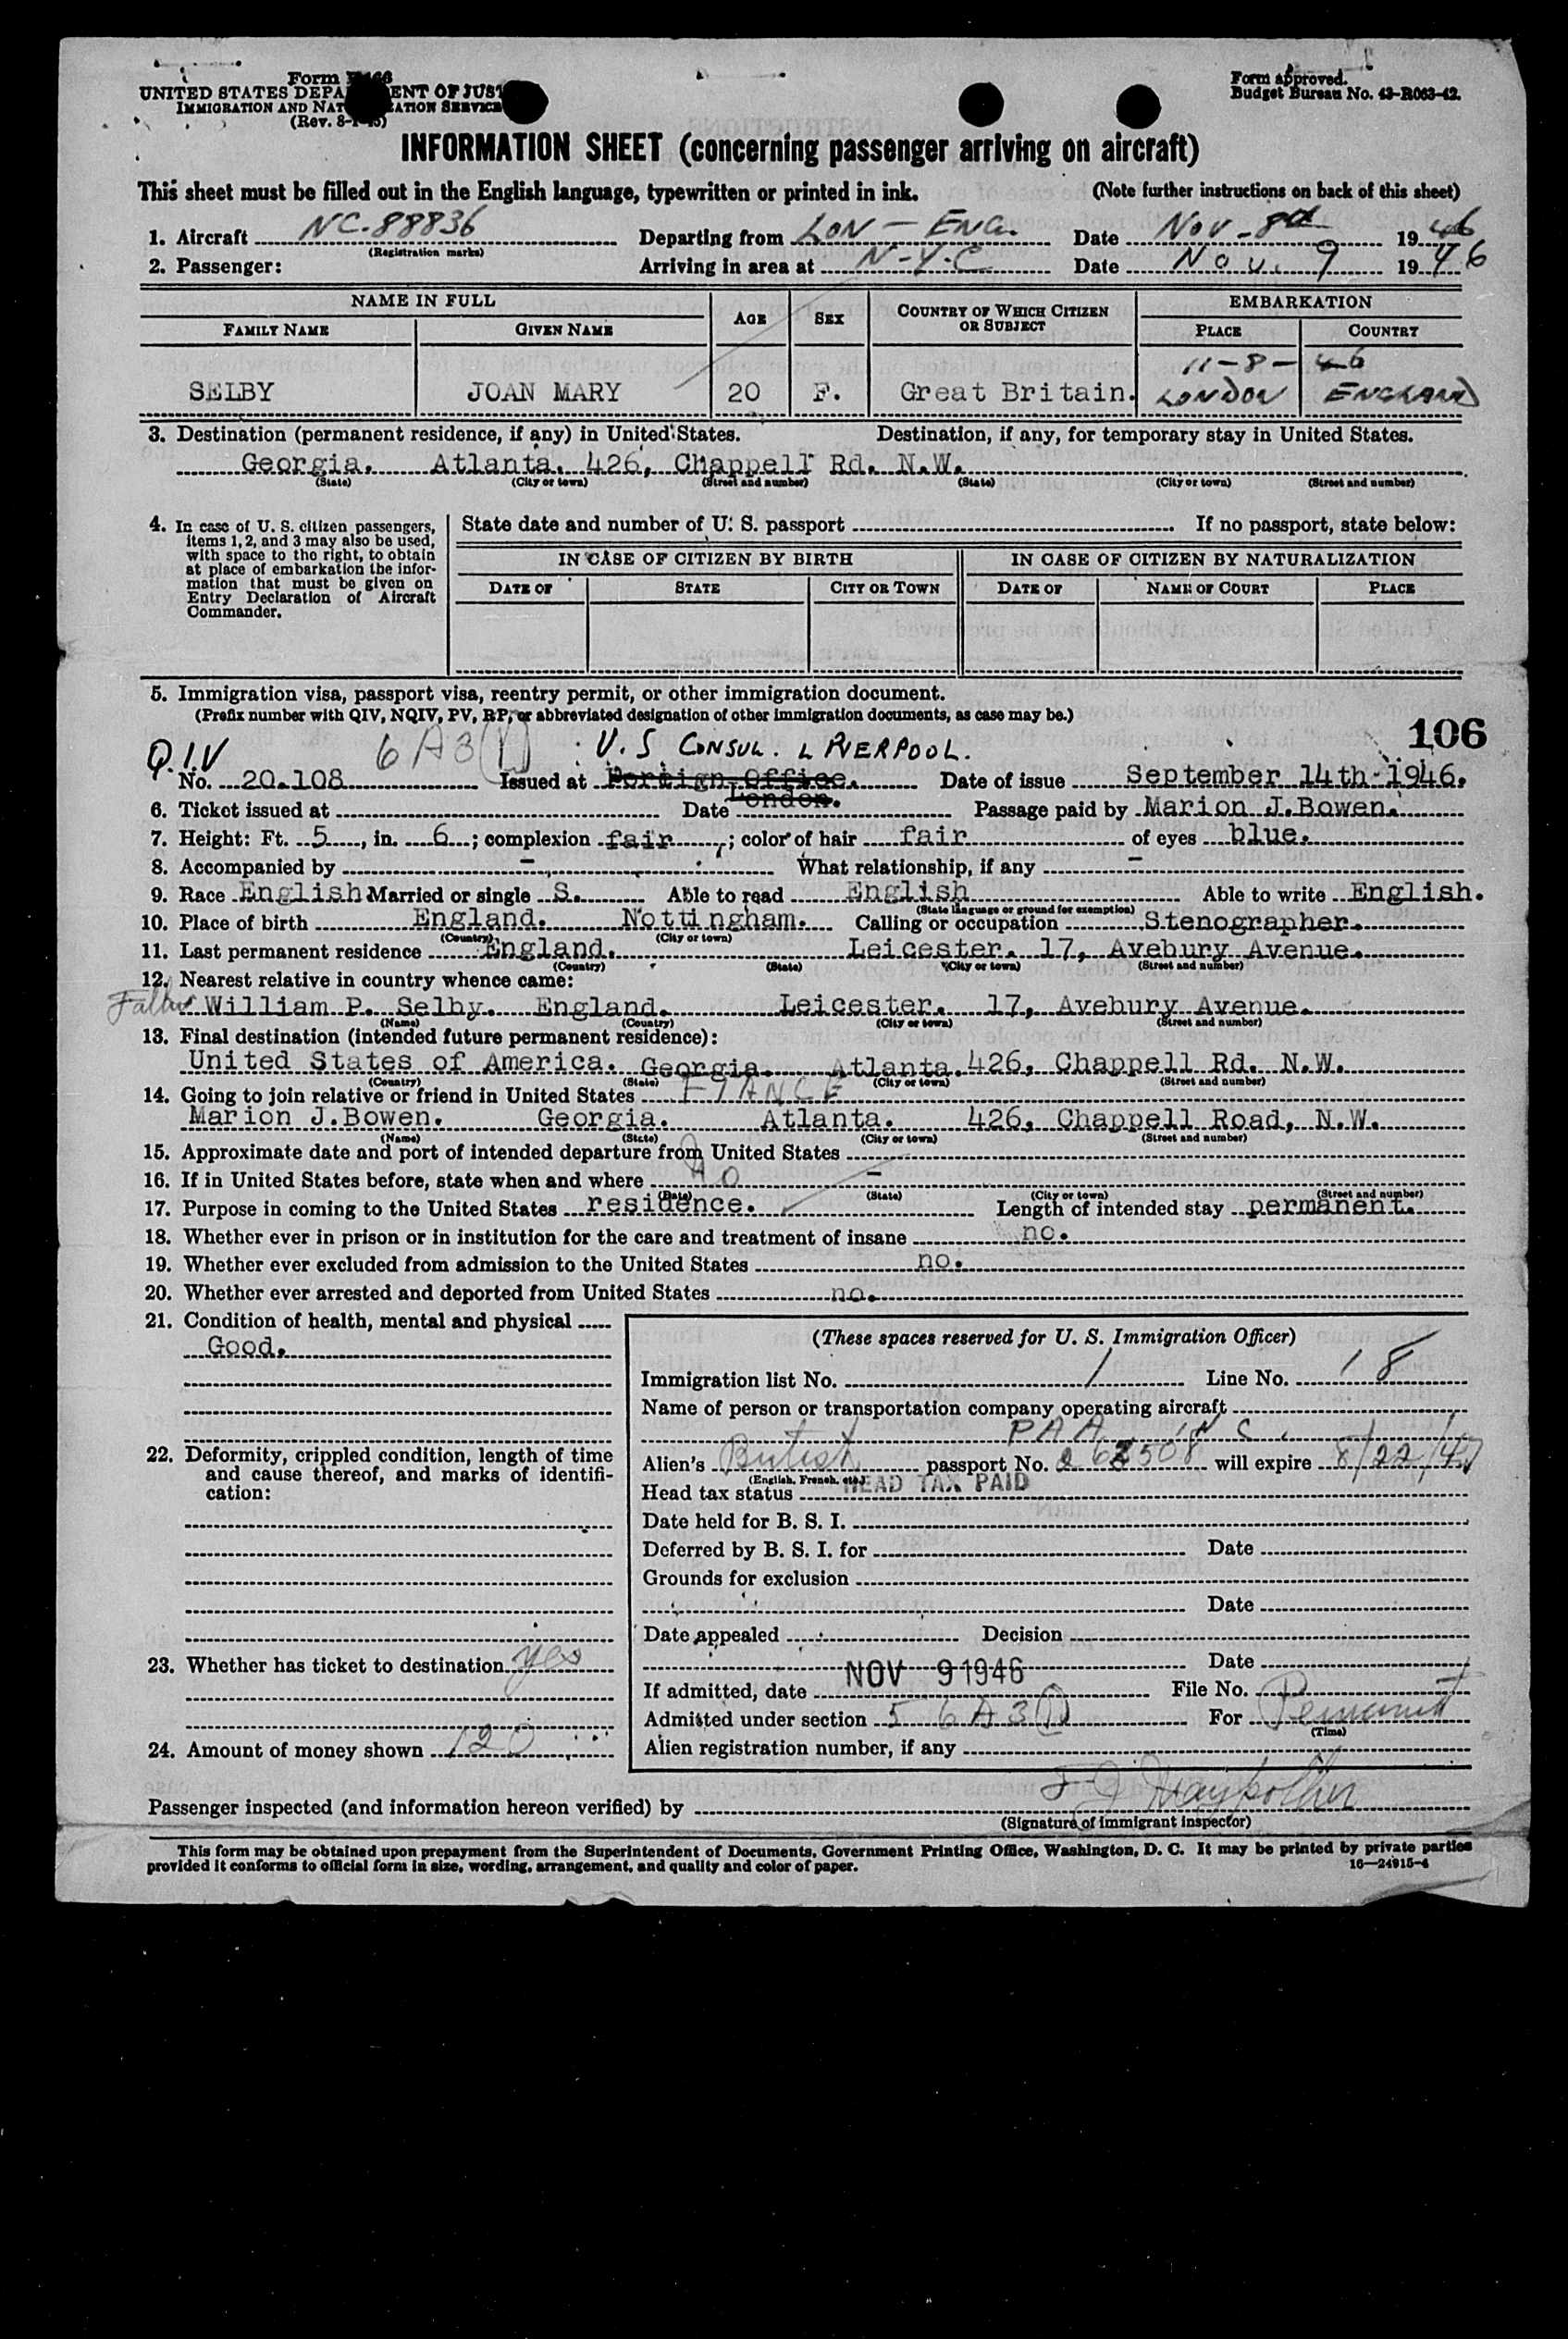 Form
UNITED STATES DEPA ENT OF JUS
IMMIGRATION AND NAT ATION SERVICE
(Rev. 8-1-45)
Form approved.
Budget Bureau No. 43-R063-42.
INFORMATION SHEET (concerning passenger arriving on aircraft)
This sheet must be filled out in the English language, typewritten or printed in ink. (Note further instructions on back of this sheet)
1. Aircraft NC-88836 Departing from LON - ENG. Date Nov - 8th 1946
(Registration marks)
2. Passenger: Arriving in area at N-Y-C Date Nov. 9 1946
NAME IN FULL AGE SEX COUNTRY OF WHICH CITIZEN OR SUBJECT EMBARKATION
FAMILY NAME GIVEN NAME PLACE COUNTRY
11-8-46
SELBY JOAN MARY 20 F. Great Britain. LONDON ENGLAND
3. Destination (permanent residence, if any) in United States. Destination, if any, for temporary stay in United States.
Georgia. Atlanta. 426, Chappell Rd. N.W.
(State) (City or town) (Street and number) (State) (City or town) (Street and number)
4. In case of U. S. citizen passengers, items 1, 2, and 3 may also be used, with space to the right, to obtain at place of embarkation the information that must be given on Entry Declaration of Aircraft Commander.
State date and number of U. S. passport If no passport, state below:
IN CASE OF CITIZEN BY BIRTH IN CASE OF CITIZEN BY NATURALIZATION
DATE OF STATE CITY OR TOWN DATE OF NAME OF COURT PLACE
5. Immigration visa, passport visa, reentry permit, or other immigration document.
(Prefix number with QIV, NQIV, PV, RP, or abbreviated designation of other immigration documents, as case may be.)
106
Q.I.V 6A3(1) U.S CONSUL. LIVERPOOL.
No. 20.108 Issued at Foreign Office. Date of issue September 14th 1946.
London.
6. Ticket issued at Date Passage paid by Marion J.Bowen.
7. Height: Ft. 5, in. 6; complexion fair; color of hair fair of eyes blue.
8. Accompanied by - What relationship, if any -
9. Race English Married or single S. Able to read English Able to write English.
(State language or ground for exemption)
10. Place of birth England. Nottingham. Calling or occupation Stenographer.
(Country) (City or town)
11. Last permanent residence England. Leicester. 17, Avebury Avenue.
(Country) (State) (City or town) (Street and number)
12. Nearest relative in country whence came:
Father William P. Selby. England. Leicester. 17, Avebury Avenue.
(Name) (Country) (City or town) (Street and number)
13. Final destination (intended future permanent residence):
United States of America. Georgia. Atlanta. 426, Chappell Rd. N.W.
(Country) (State) (City or town) (Street and number)
14. Going to join relative or friend in United States FIANCE
Marion J.Bowen. Georgia. Atlanta. 426, Chappell Road, N.W.
(Name) (State) (City or town) (Street and number)
15. Approximate date and port of intended departure from United States
16. If in United States before, state when and where no -
(Date) (State) (City or town) (Street and number)
17. Purpose in coming to the United States residence. Length of intended stay permanent.
18. Whether ever in prison or in institution for the care and treatment of insane no.
19. Whether ever excluded from admission to the United States no.
20. Whether ever arrested and deported from United States no.
21. Condition of health, mental and physical
Good.
22. Deformity, crippled condition, length of time and cause thereof, and marks of identification:
23. Whether has ticket to destination yes
24. Amount of money shown 120
(These spaces reserved for U. S. Immigration Officer)
Immigration list No. 1 Line No. 18
Name of person or transportation company operating aircraft
PAA INC.
Alien's British passport No. will expire 8/22/47
(English, French, etc.)
Head tax status HEAD TAX PAID
Date held for B. S. I.
Deferred by B. S. I. for Date
Grounds for exclusion
Date
Date appealed Decision
Date
If admitted, date NOV 9 1946 File No.
Admitted under section 5 6A3(1) For Permanent
(Time)
Alien registration number, if any
Passenger inspected (and information hereon verified) by
(Signature of immigrant inspector)
This form may be obtained upon prepayment from the Superintendent of Documents, Government Printing Office, Washington, D. C. It may be printed by private parties
provided it conforms to official form in size, wording, arrangement, and quality and color of paper. 16—24915-4